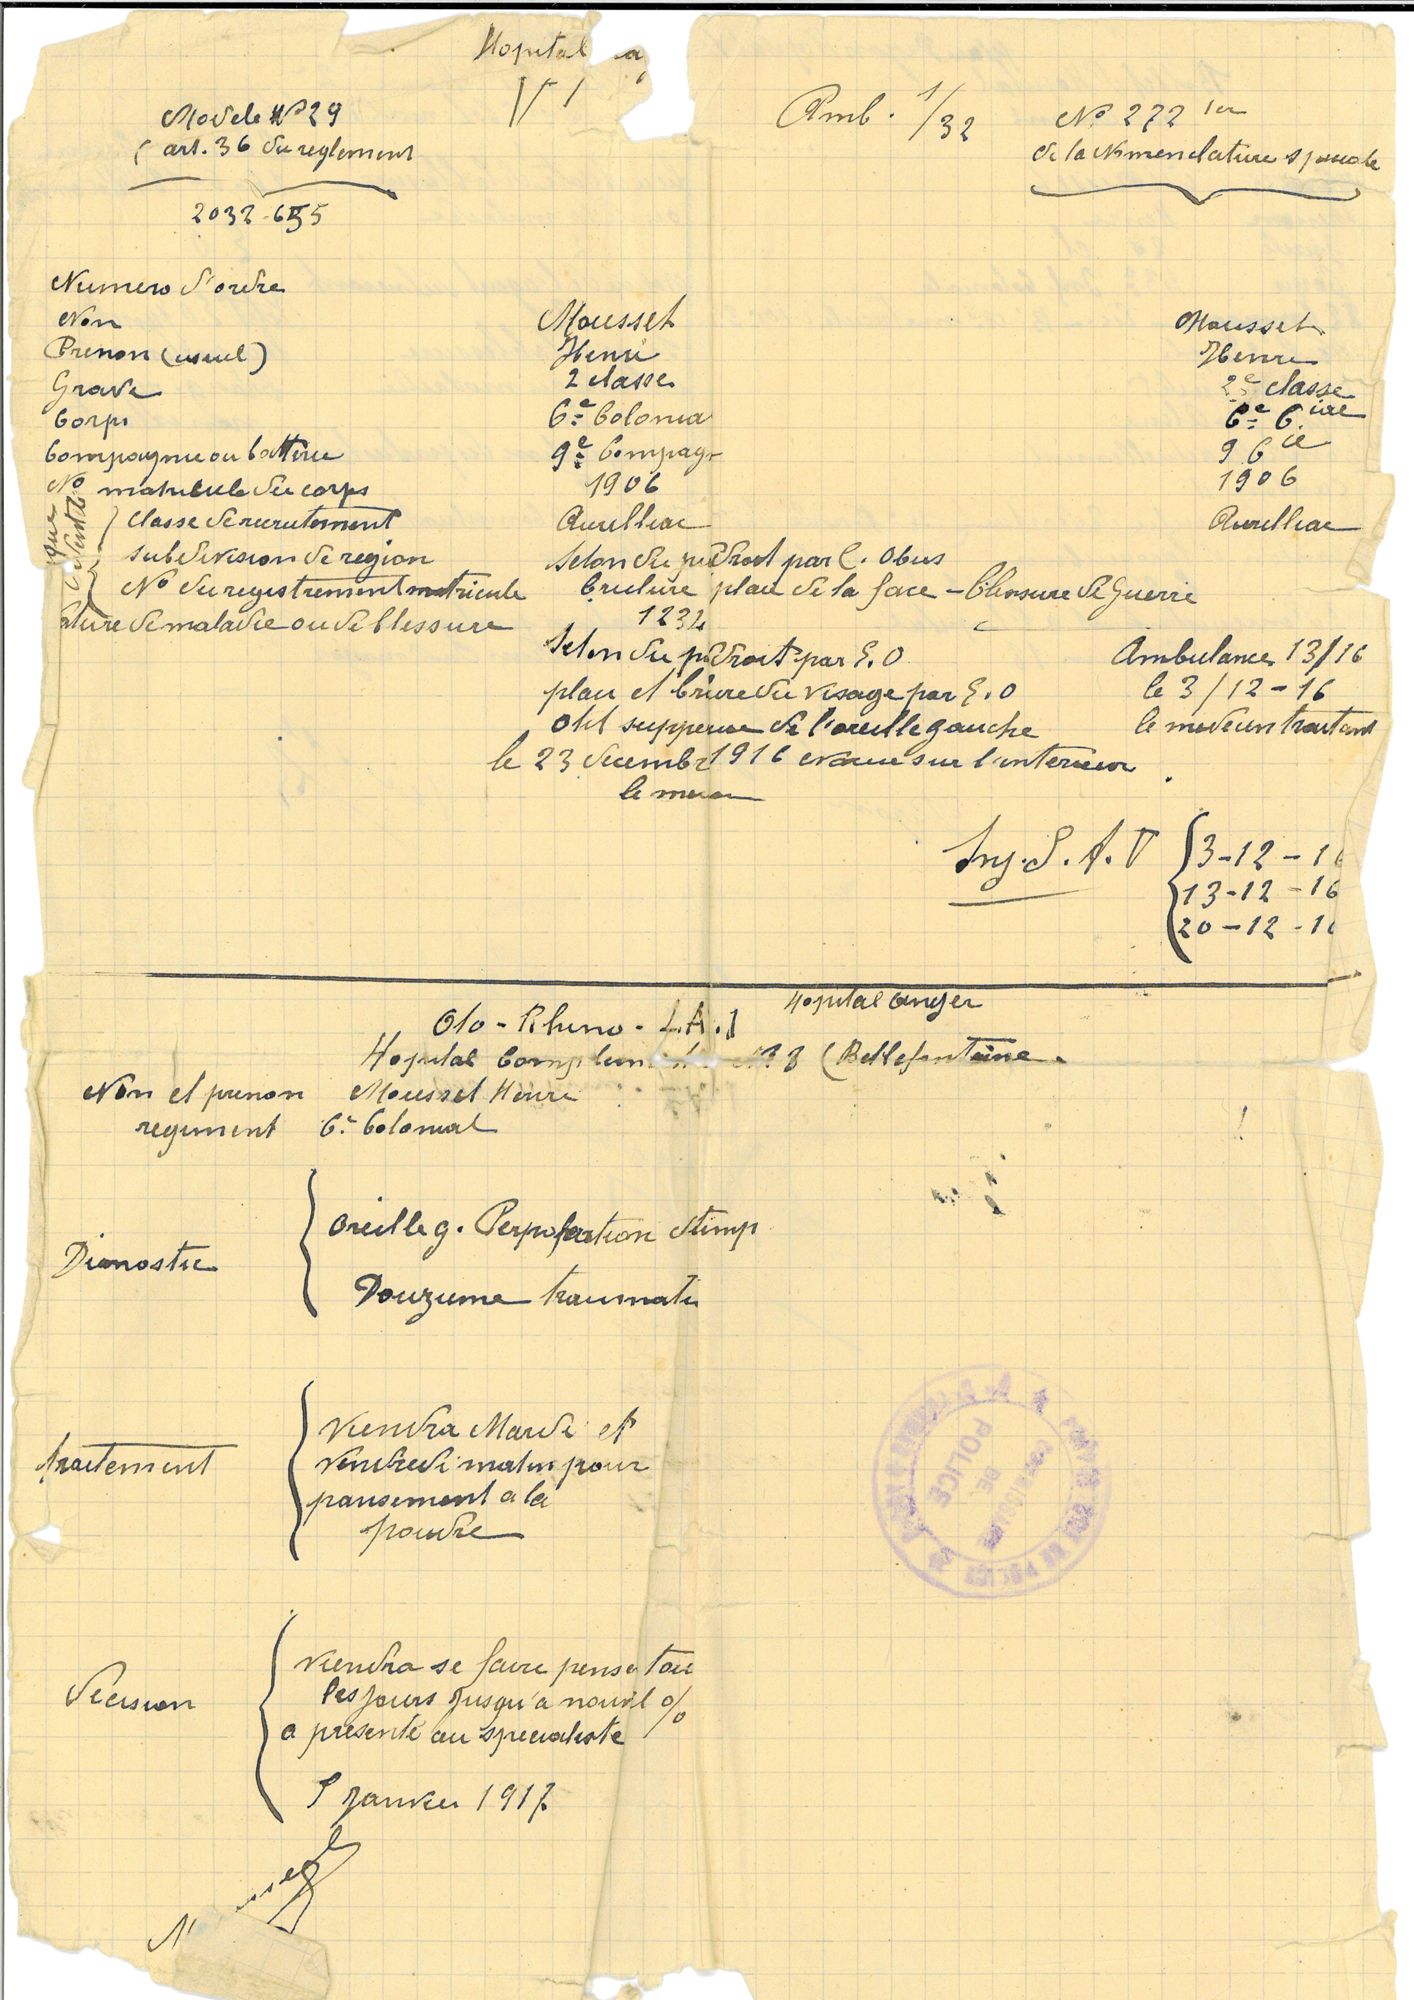 Hopital
Modele Nº 29
(art. 36 du reglement
2032-655
Amb. 1/32
Nº 272 ier
de la Nomenclature speciale
Numero d'ordre
Non Mousset Mousset
Prenon (usuel) Henri Henri
Grade 2 classe 2e classe
Corps 6e Colonia 6e Cial
Compagnie ou batterie 9e Compag 9 Cie
Nº matricule du corps 1906 1906
Classe de recrutement Aurelliac Aurelliac
subdivision de region Selon du pied droit par E. Obus
Nº du registrement matricule brulure plaie de la face - blessure de Guerre
ature de maladie ou de blessure 1232
Selon du pied droit par E. O
plaie et brure du visage par E. O
Otit suppurée de l'oreille gauche
Ambulance 13/16
le 3/12-16
le medecin traitant
le 23 decembre 1916 evacue sur l'interieur
le
Inj. S. A. T { 3-12-16
13-12-16
20-12-16
Hopital Angers
Oto-Rhino-
Hopital Complem Nº 8 (Bellefontaine.
Non et prenon Mousset Henri
regiment 6e Colonial
Dianostic { Oreille g. Perpofartion timp
traumati
traitement { viendra Mardi et
vendredi matin pour
pansement a la
poudre
decision { viendra se faire panse tou
les jours jusqu'a nouvel %
a presenté au specialiste
5 Janvier 1917.
POLICE
DE